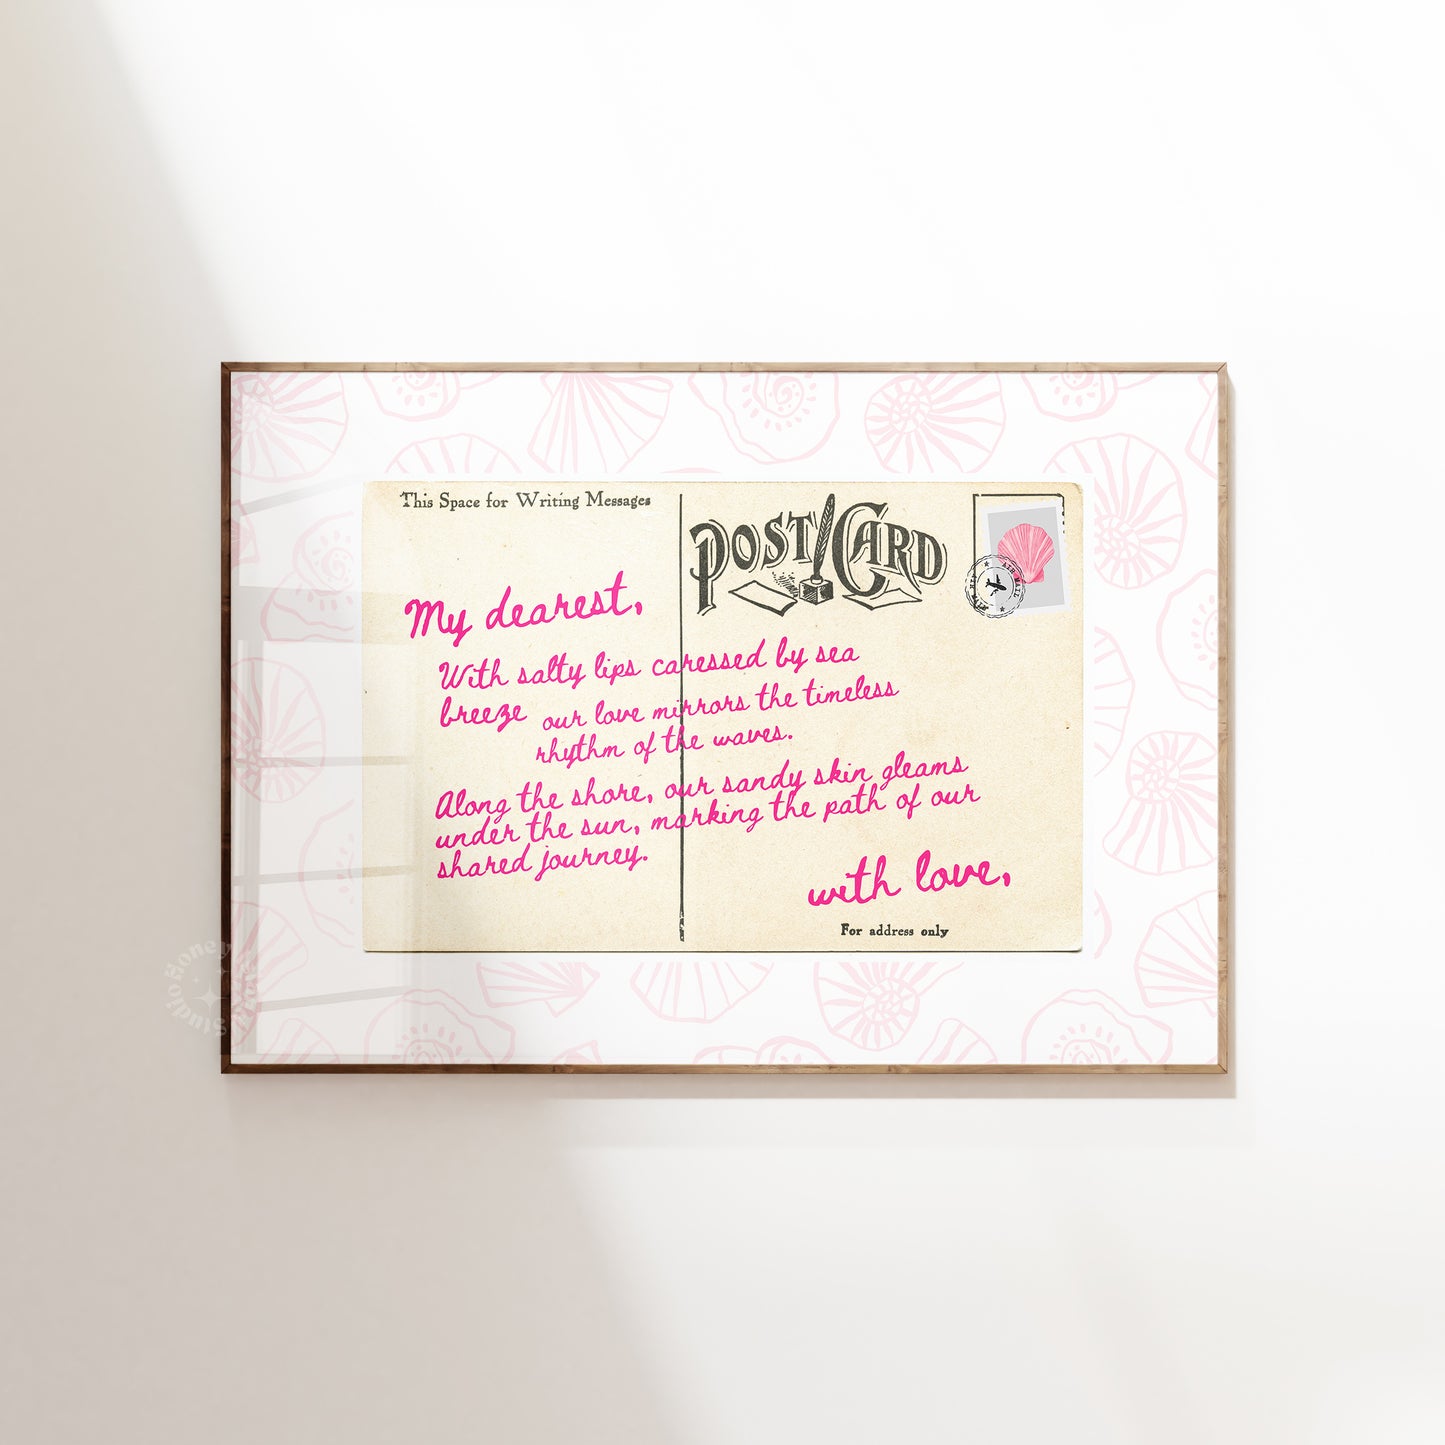 This Space for Writing Messages
POST CARD
AIR MAIL
My dearest,
With salty lips caressed by sea
breeze our love mirrors the timeless
rhythm of the waves.
Along the shore, our sandy skin gleams
under the sun, marking the path of our
shared journey.
with love,
For address only
Honey
Studio